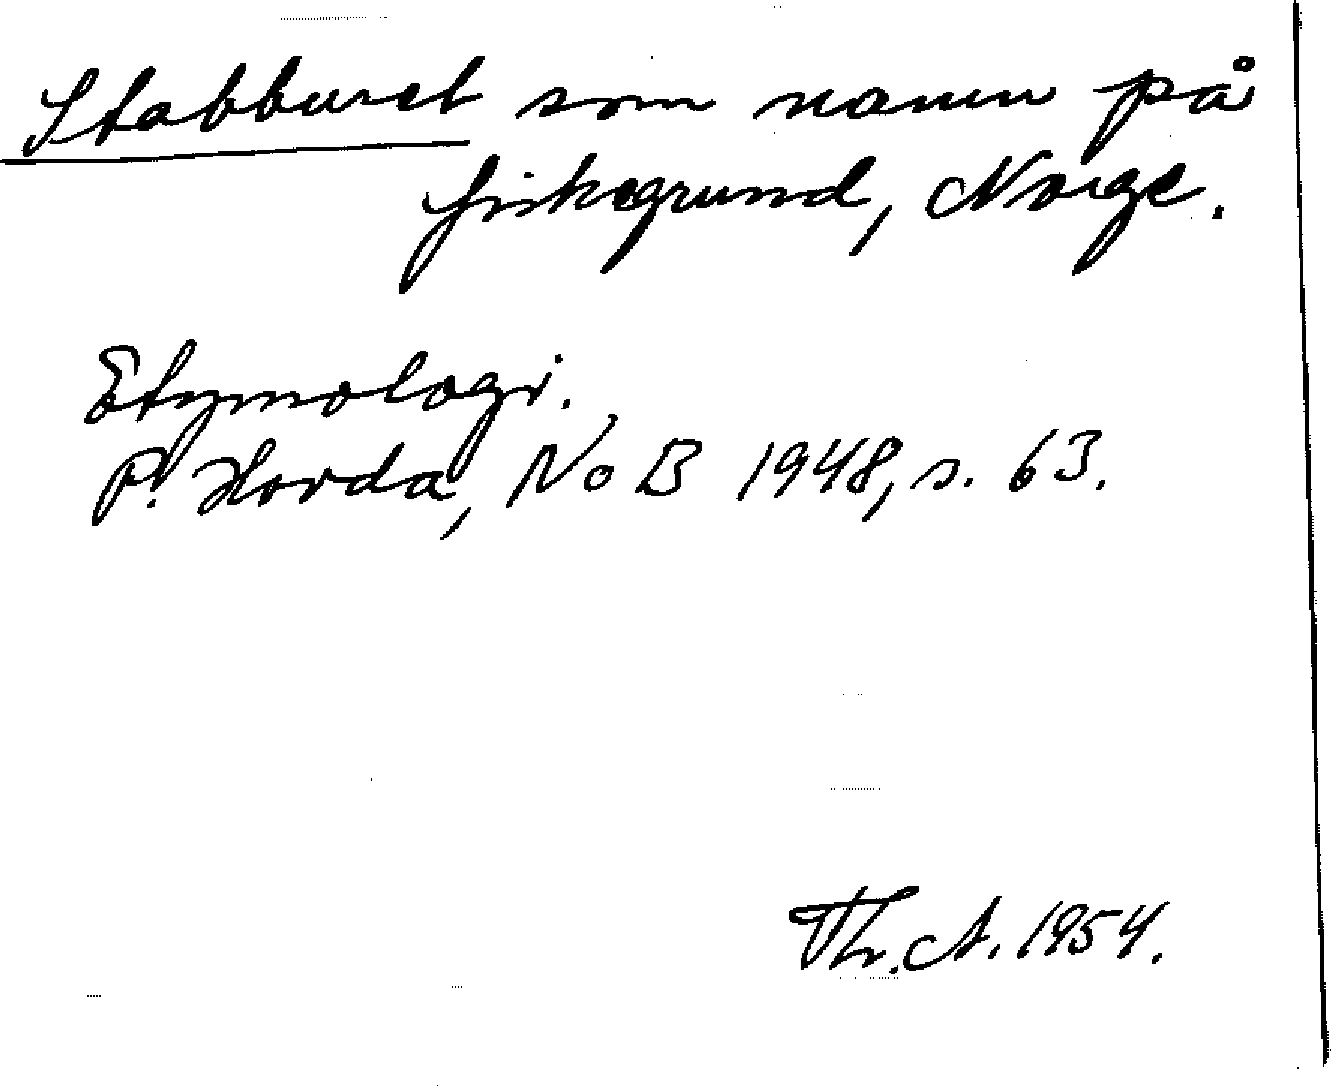 Stabburet som namn på
fiskegrund, Norge.
Etymologi.
P. Horda, NoB 1948, s. 63.
Th. A. 1954.